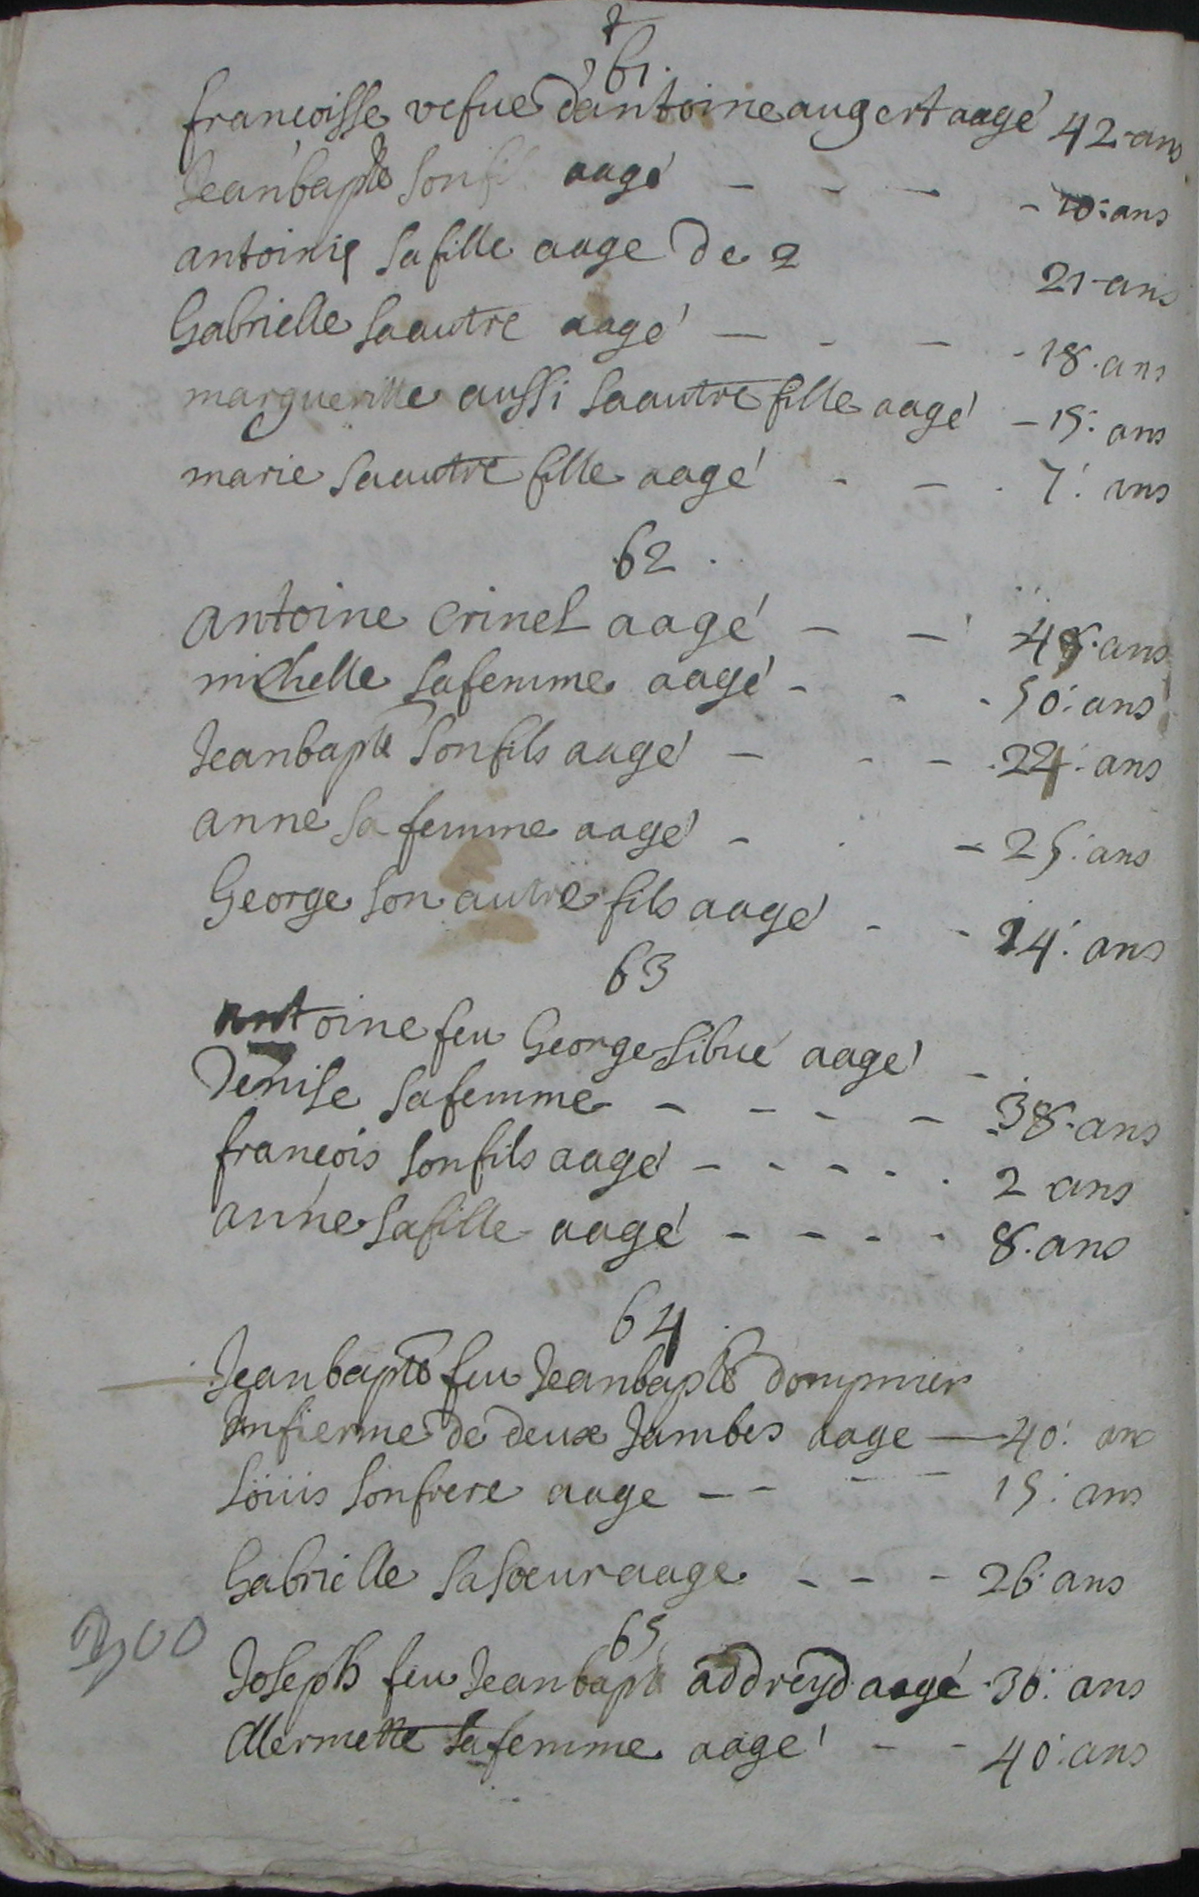 61.
francoisse vefue dantoine augert aagé 42 ans
Jeanbapte son fils aagé - - - - 10: ans
antoinie sa fille aage de 2 21 ans
Gabrielle sa autre aagé - - - - 18. ans
margueritte aussi sa autre fille aagé - 15: ans
marie sa autre fille aagé - - - 7: ans
62.
antoine Crinel aagé - - 48. ans
michelle sa femme aagé - - - 50: ans
Jeanbapte son fils aagé - - - 24: ans
anne sa femme aagé - - - 25: ans
George son autre fils aagé - - 14: ans
63
antoine feu George Sibué aagé -
Denise sa femme - - - - - 38. ans
francois son fils aagé - - - - - 2 ans
anne sa fille aagé - - - - - 8. ans
64.
Jeanbapte feu Jeanbapte dompnier
Infierme de deux Jambes aage — 40: ans
Loüis son frere aage - - - - 15: ans
Gabrielle sa soeur aage. - - - 26 ans
65
Joseph feu Jeanbapte addreyd aagé 30: ans
Mermette sa femme aagé - - 40: ans